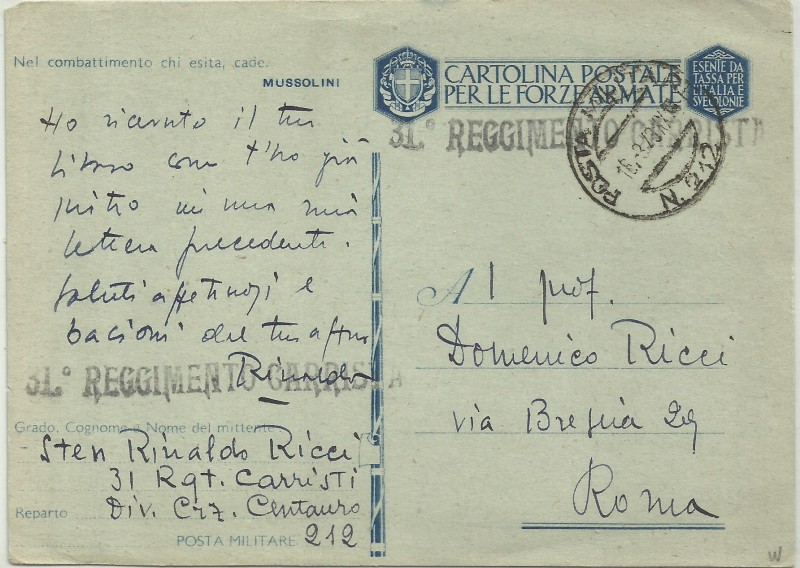 Nel combattimento chi esita, cade.
MUSSOLINI
Ho ricevuto il tuo
libro come t'ho già
in una mia
lettera precedente.
Saluti affettuosi e
bacioni dal tuo aff.mo
Rinaldo
31.° REGGIMENTO CARRISTA
Grado, Cognome e Nome del mittente
Sten Rinaldo Ricci
31 Rgt. Carristi
Reparto Div. Crz. Centauro
POSTA MILITARE 212
CARTOLINA POSTALE
PER LE FORZE ARMATE
ESENTE DA
TASSA PER
L'ITALIA E
SUE COLONIE
31.° REGGIMENTO CARRISTA
POSTA MILITARE
N. 212
Al prof.
Domenico Ricci
via 29
Roma
W